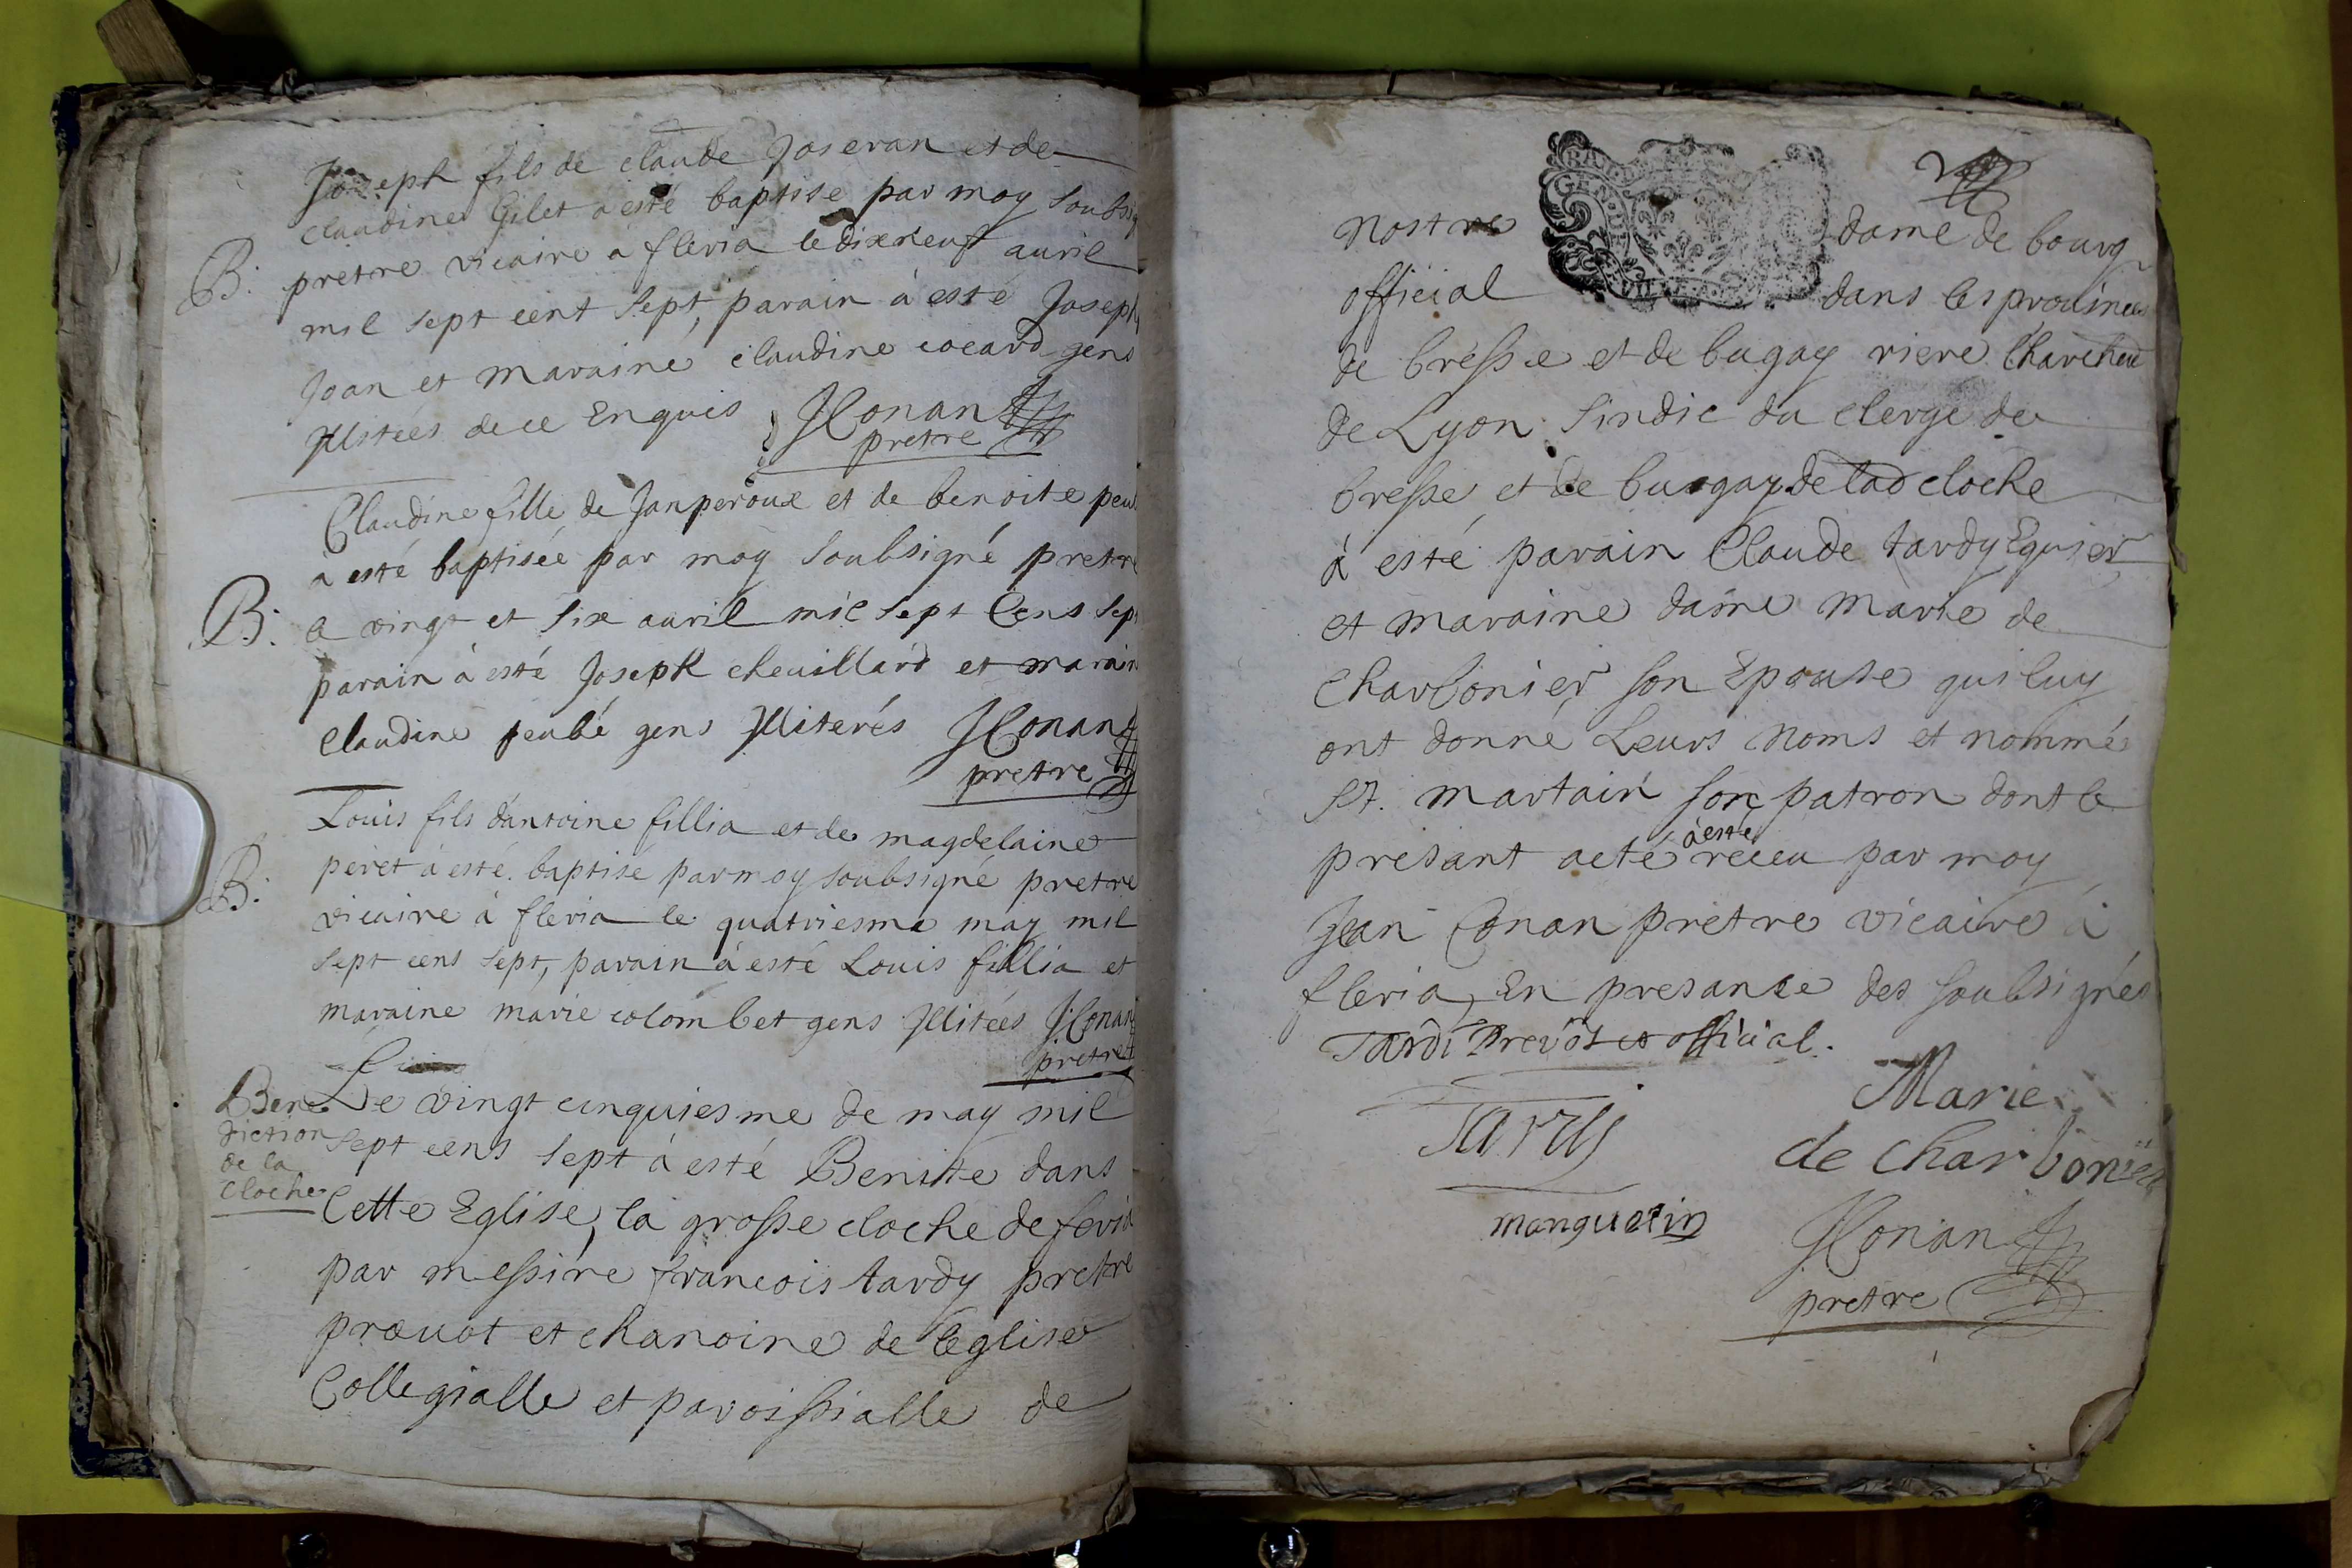 Joseph fils de claude Joseran et de
claudine Gilet a esté baptisé par moy soubsig
B. pretre vicaire a fleria le dixneuf auril
mil sept cent sept, parain à esté Joseph
Joan et maraine claudine cocard gens
Illitées de ce Enquis JConan
pretre
Claudine fille de Jan peroux et de benoite peu
a esté baptisée par moy soubsigné pretre
B. le vingt et six auril mil sept Cens sept
parain à esté Joseph cheuillard et marain
claudine peubé gens Illiterés JConan
pretre
Louis fils d'antoine fillia et de magdelaine
peret à esté baptisé par moy soubsigné pretre
B. vicaire à fleria le quatriesme may mil
sept cens sept, parain à esté Louis fillia et
maraine marie colombet gens Illitées JConan
pretre
Bene
diction
de la
cloche
Le vingt cinquiesme de may mil
sept cens sept à esté Benitte dans
Cette Eglise, la grosse cloche de
par messire francois tardy pretre
præuot et chanoine de leglise
Collegialle et paroissialle de
nostre dame de bourg
official dans les prouinces
de bresse et de bugay riere
de Lyon sindic du clerge de
bresse et de bugay de lad cloche
à esté parain Claude tardy Equier
et maraine dame marie de
charbonier son Epouse qui luy
ont donné Leurs noms et nommé
St. martain son patron dont le
presant acte à esté receu par moy
Jean Conan pretre vicaire à
fleria, En presance des soubsignés
Tardi Prevôt et official.
Tardy
Marie
de charbonier
manguetin
JConan
pretre